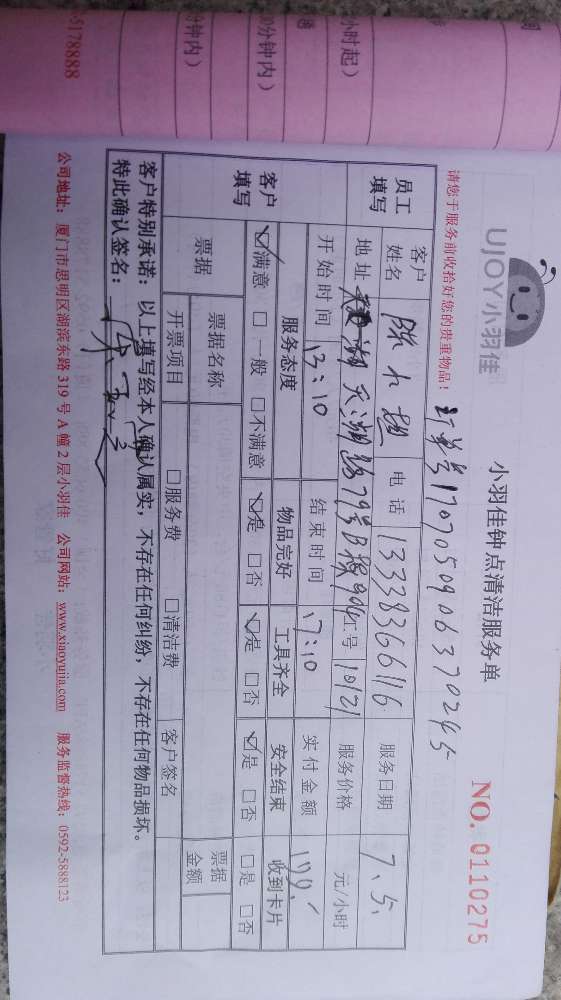 5178888
分钟内）
0分钟内）
小时起）
UJOY小羽佳
小羽佳钟点清洁服务单
NO. 0110275
请您于服务前收拾好您的贵重物品！
订单号1707050906370245
员工填写
客户姓名 陈小 电话 13338366116 服务日期 7.5.
地址 天湖路79号B 904 工号 10121 服务价格 元/小时
开始时间 13:10 结束时间 17:10 实付金额 199.
客户填写
服务态度 物品完好 工具齐全 安全结束 收到卡片
☑满意 □一般 □不满意 ☑是 □否 ☑是 □否 ☑是 □否 □是 □否
票据 票据名称 票据金额
开票项目 □服务费 □清洁费 客户签名
客户特别承诺：以上填写经本人确认属实，不存在任何纠纷，不存在任何物品损坏。
特此确认签名：
公司地址：厦门市思明区湖滨东路 319 号 A 幢 2 层小羽佳 公司网站：www.xiaoyujia.com 服务监督热线：0592-5888123